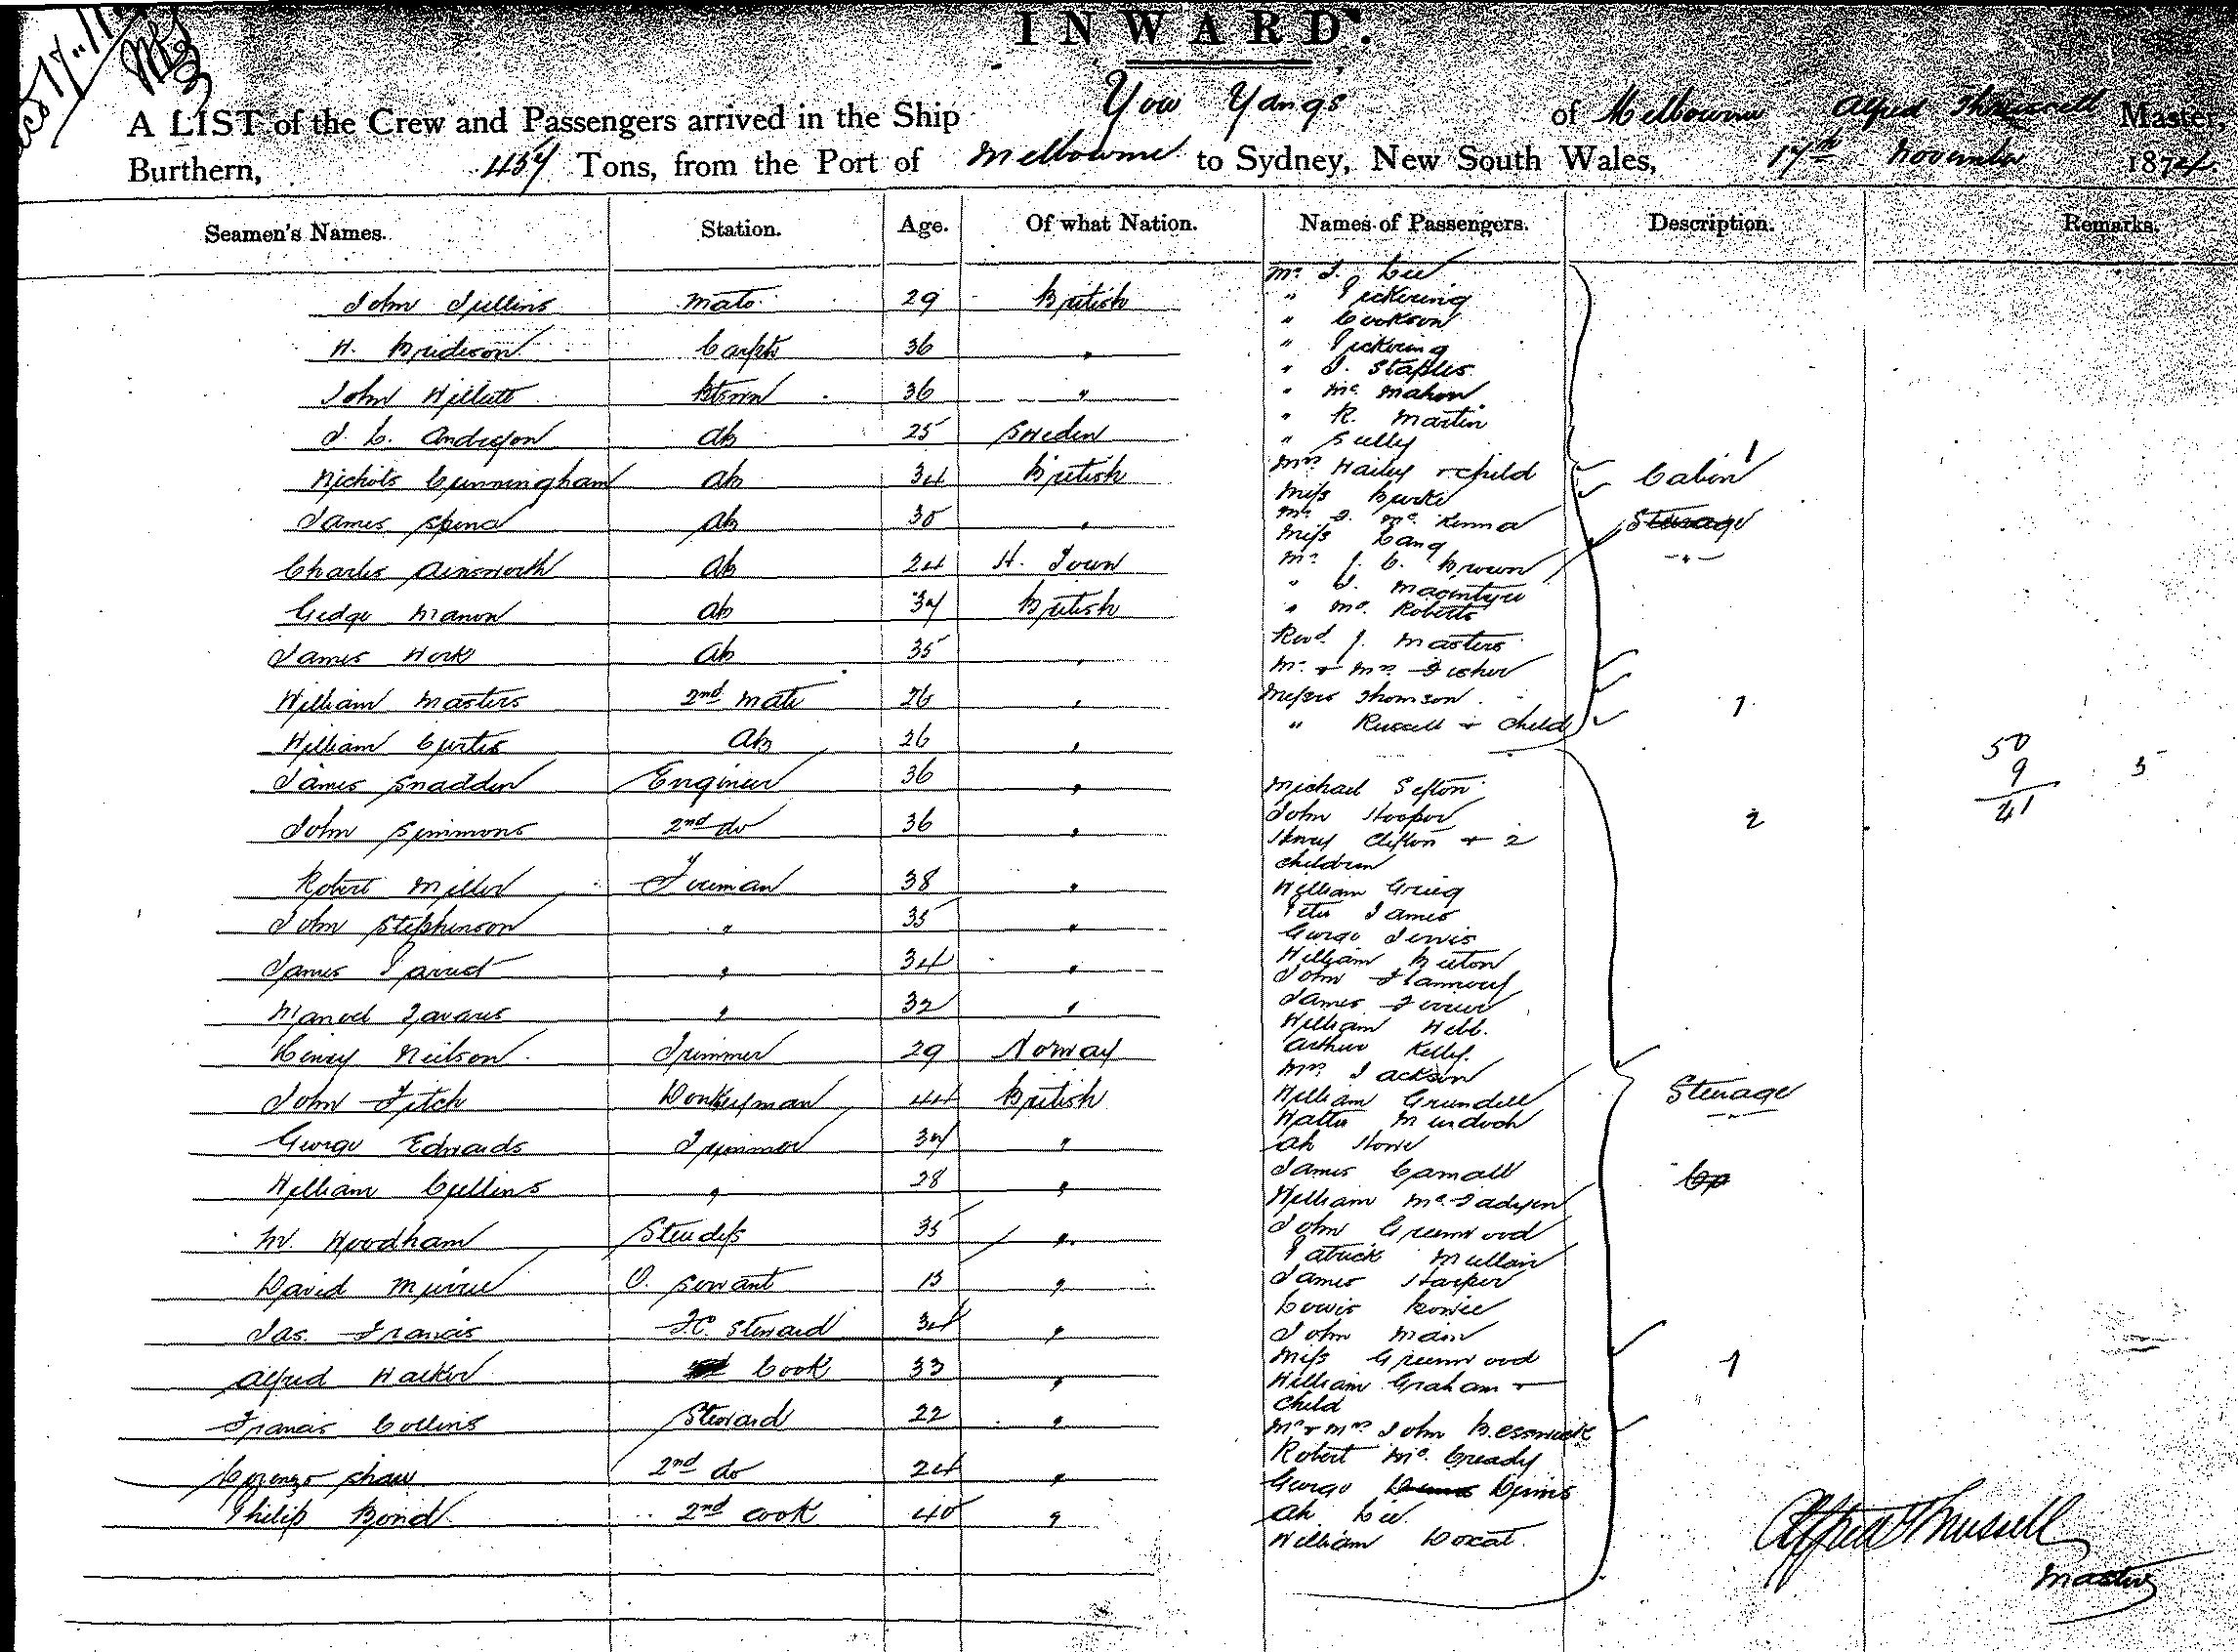 INWARD.
A LIST of the Crew and Passengers arrived in the Ship You Yangs of Melbourne Alfred Thrussell Master,
Burthern, 457 Tons, from the Port of Melbourne to Sydney, New South Wales, 17th November 1874.
Seamen's Names. Station. Age. Of what Nation. Names of Passengers. Description. Remarks.
John Jullins Mate 29 British
H. Brideson Carptr 36 "
John Willett 36 "
J. C. Anderson AB 25 Sweden
Nichols Cunningham AB 34 British
James Spence AB 30 "
Charles Ainsworth AB 24 H. Town
Manon AB 37 British
James Work AB 35 "
William Masters 2nd Mate 26 "
William Curtis AB 26 "
James Snadden Engineer 36 "
John Simmons 2nd do 36 "
Robert Miller Fireman 38 "
John Stephenson " 35 "
James " 34 "
Manoel Tavares " 32 "
Henry Neilson Trimmer 29 Norway
John Fitch Donkeyman 44 British
George Edwards Trimmer 37 "
William Cullins " 28 "
M. Woodham Stewdess 35 "
David Murrie O. Servant 13 "
Jas. Francis F.C. Steward 34 "
Alfred Walker Cook 33 "
Francis Collins Steward 22 "
Lorenzo Shaw 2nd do 24 "
Philip Bond 2nd Cook 40 "
Mr. J. Lee
" Pickering
" Cookson
" Pickering
" J. Staples
" Mc. Mahon
" R. Martin
" Sully
Mrs Hailey & child
Miss Burke
Mr. J. Mc. Kenna
Miss Lang
Mr. J. C. Brown
" J. Macintyre
" Mc. Roberts
Revd. J. Masters
Mr. & Mrs. Fisher
Messrs Thomson
" Russell & child
Cabin 1
Steerage
"
1
Michael Sefton
John Hooper
Henry Clifton & 2
children
William Grieg
Peter James
George Jervis
William Beeton
John Flannery
James Ferrier
William Webb.
Arthur Kelly.
Mrs. Jackson
William Grundell
Walter Murdoch
Ah Howe
James Camall
William Mc. Fadyen
John Greenwood
Patrick Mullain
James Harper
Lewis Bowie
John Main
Miss Greenwood
William Graham &
child
Mr & Mrs John Besswick
Robert Mc. Cready
George Dennis
Ah Lee
William Doxat.
2
Steerage
1
50
9
41
5
Alfred Thrussell
Master